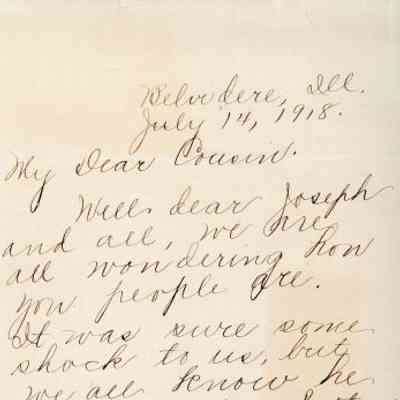 Belvidere, Ill.
July 14, 1918.
My Dear Cousin.
Well dear Joseph
and all, we are
all wondering how
you people are.
It was sure some
shock to us, but
we all know he